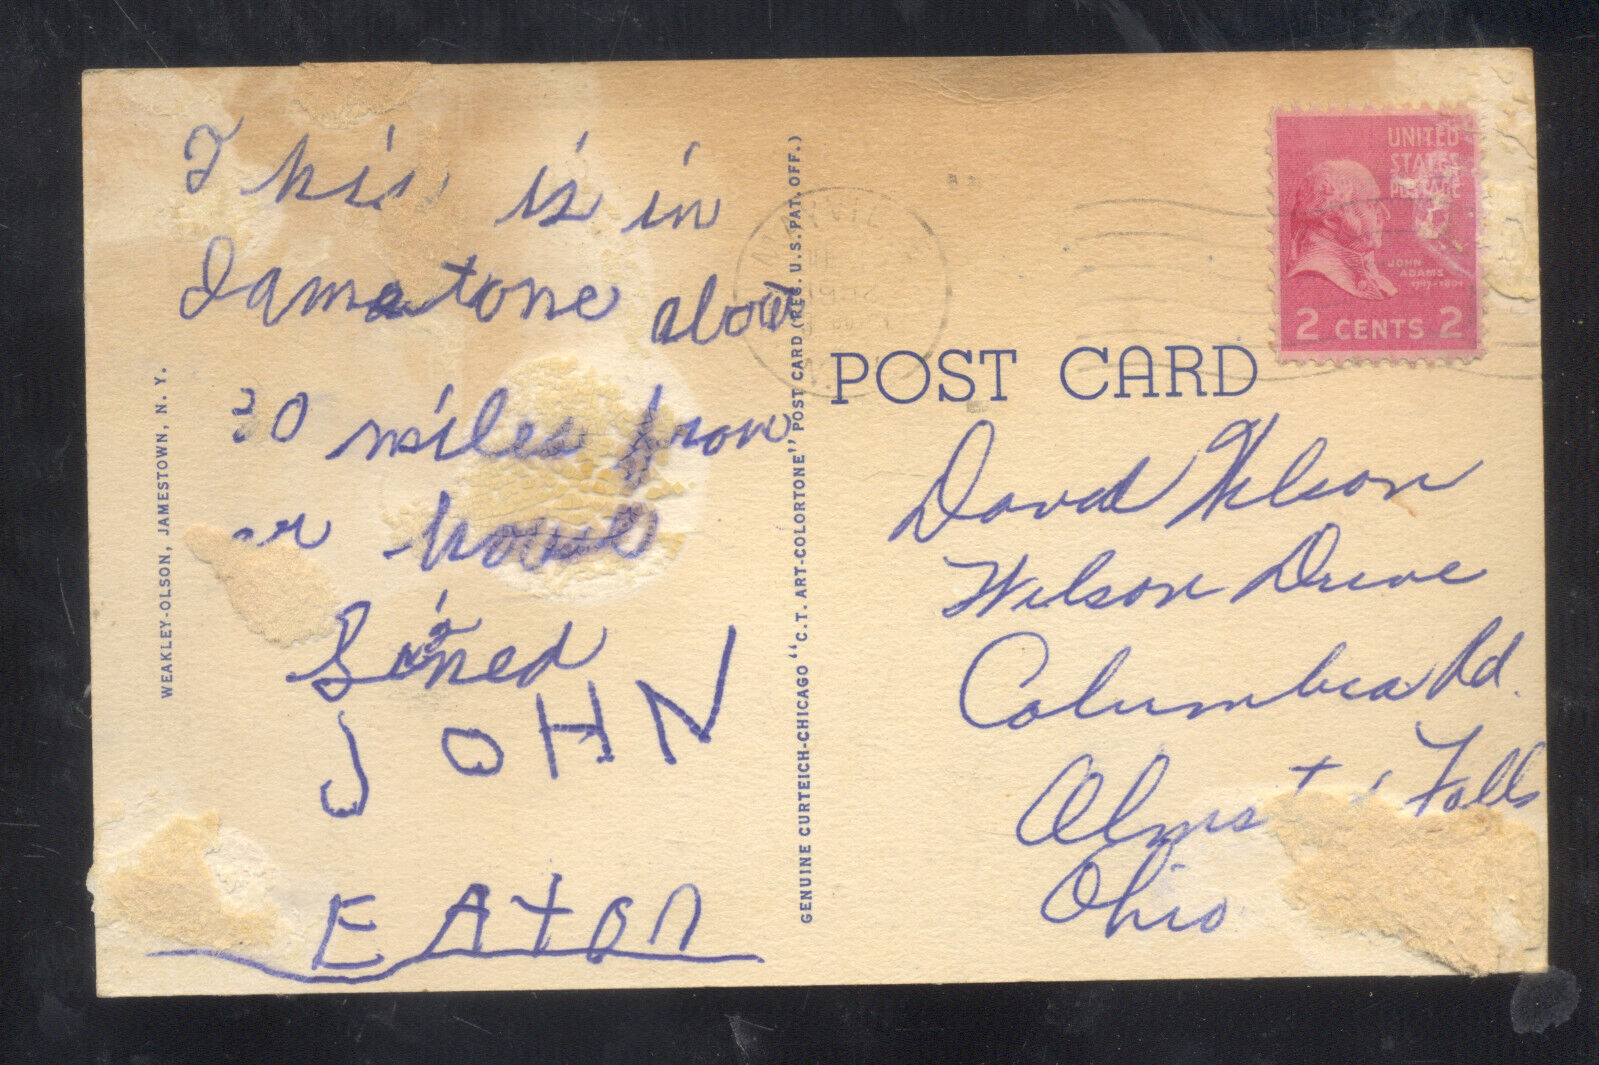 This is in
Jamestone about
30 miles from
house
Sined
JOHN
EATON
WEAKLEY-OLSON, JAMESTOWN, N. Y.
GENUINE CURTEICH-CHICAGO "C.T. ART-COLORTONE" POST CARD (REG. U.S. PAT. OFF.)
POST CARD
UNITED
STATES
POSTAGE
JOHN
ADAMS
1797-1801
2 CENTS 2
David Wilson
Wilson Drive
Columbia Rd.
Falls
Ohio